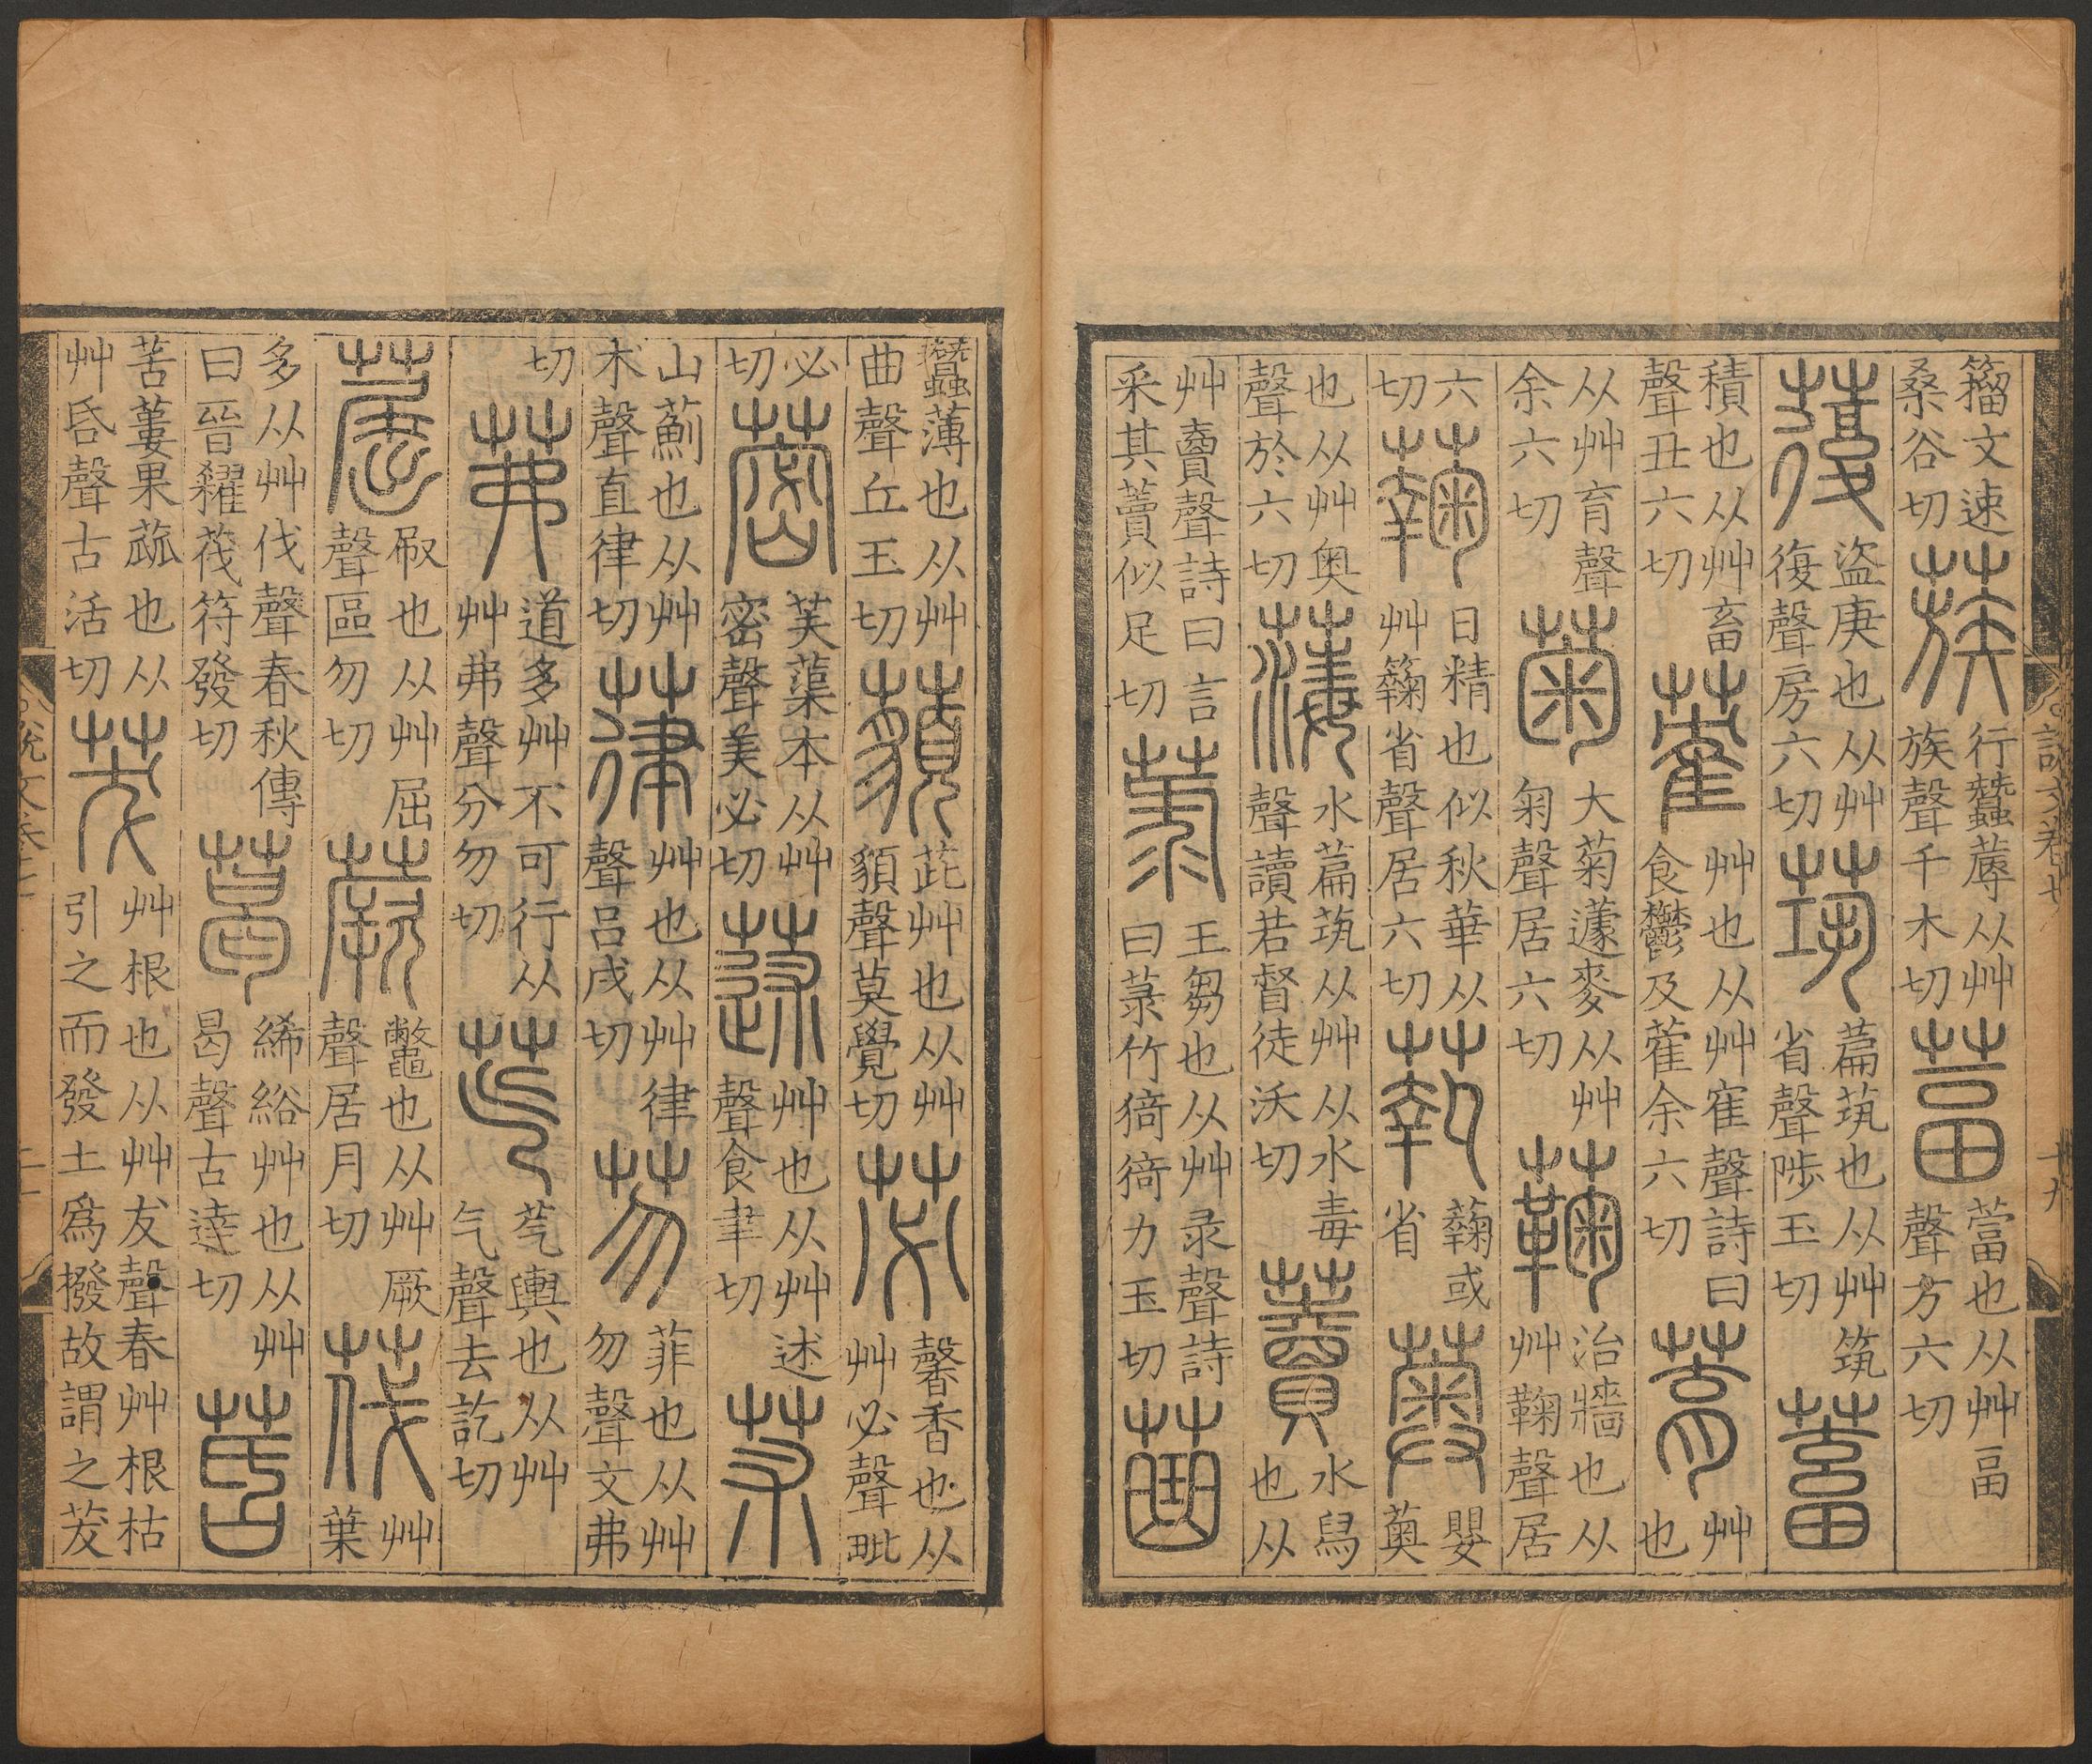 說文卷七 十九
籒文速桑谷切蔟行蠶蓐从艸族聲千木切葍䔰也从艸畐聲方六切
蕧盜庚也从艸復聲房六切茿萹茿也从艸筑省聲陟玉切蓄
積也从艸畜聲丑六切蒮艸也从艸寉聲詩曰食鬱及蒮余六切艸也
从艸育聲余六切菊大菊蘧麥从艸匊聲居六切治牆也从艸鞠聲居
六切日精也似秋華从艸省聲居六切或省薁嬰薁
也从艸奥聲於六切水萹茿从艸从水毒聲讀若督徒沃切藚水舃也从
艸賣聲詩曰言采其藚似足切菉王芻也从艸彔聲詩曰菉竹猗猗力玉切
蠶薄也从艸曲聲丘玉切藐茈艸也从艸貌聲莫覺切苾馨香也从艸必聲毗
必切蔤芙蕖本从艸密聲美必切蒁艸也从艸述聲食聿切
山薊也从艸朮聲直律切葎艸也从艸律聲呂戌切芴菲也从艸勿聲文弗
切茀道多艸不可行从艸弗聲分勿切芞芞輿也从艸气聲去訖切
䓛㕞也从艸屈聲區勿切蕨鼈也从艸厥聲居月切茷艸葉
多从艸伐聲春秋傳曰晉糴茷符發切葛絺綌艸也从艸曷聲古達切
苦蔞果蓏也从艸昏聲古活切茇艸根也从艸犮聲春艸根枯引之而發土爲撥故謂之茇